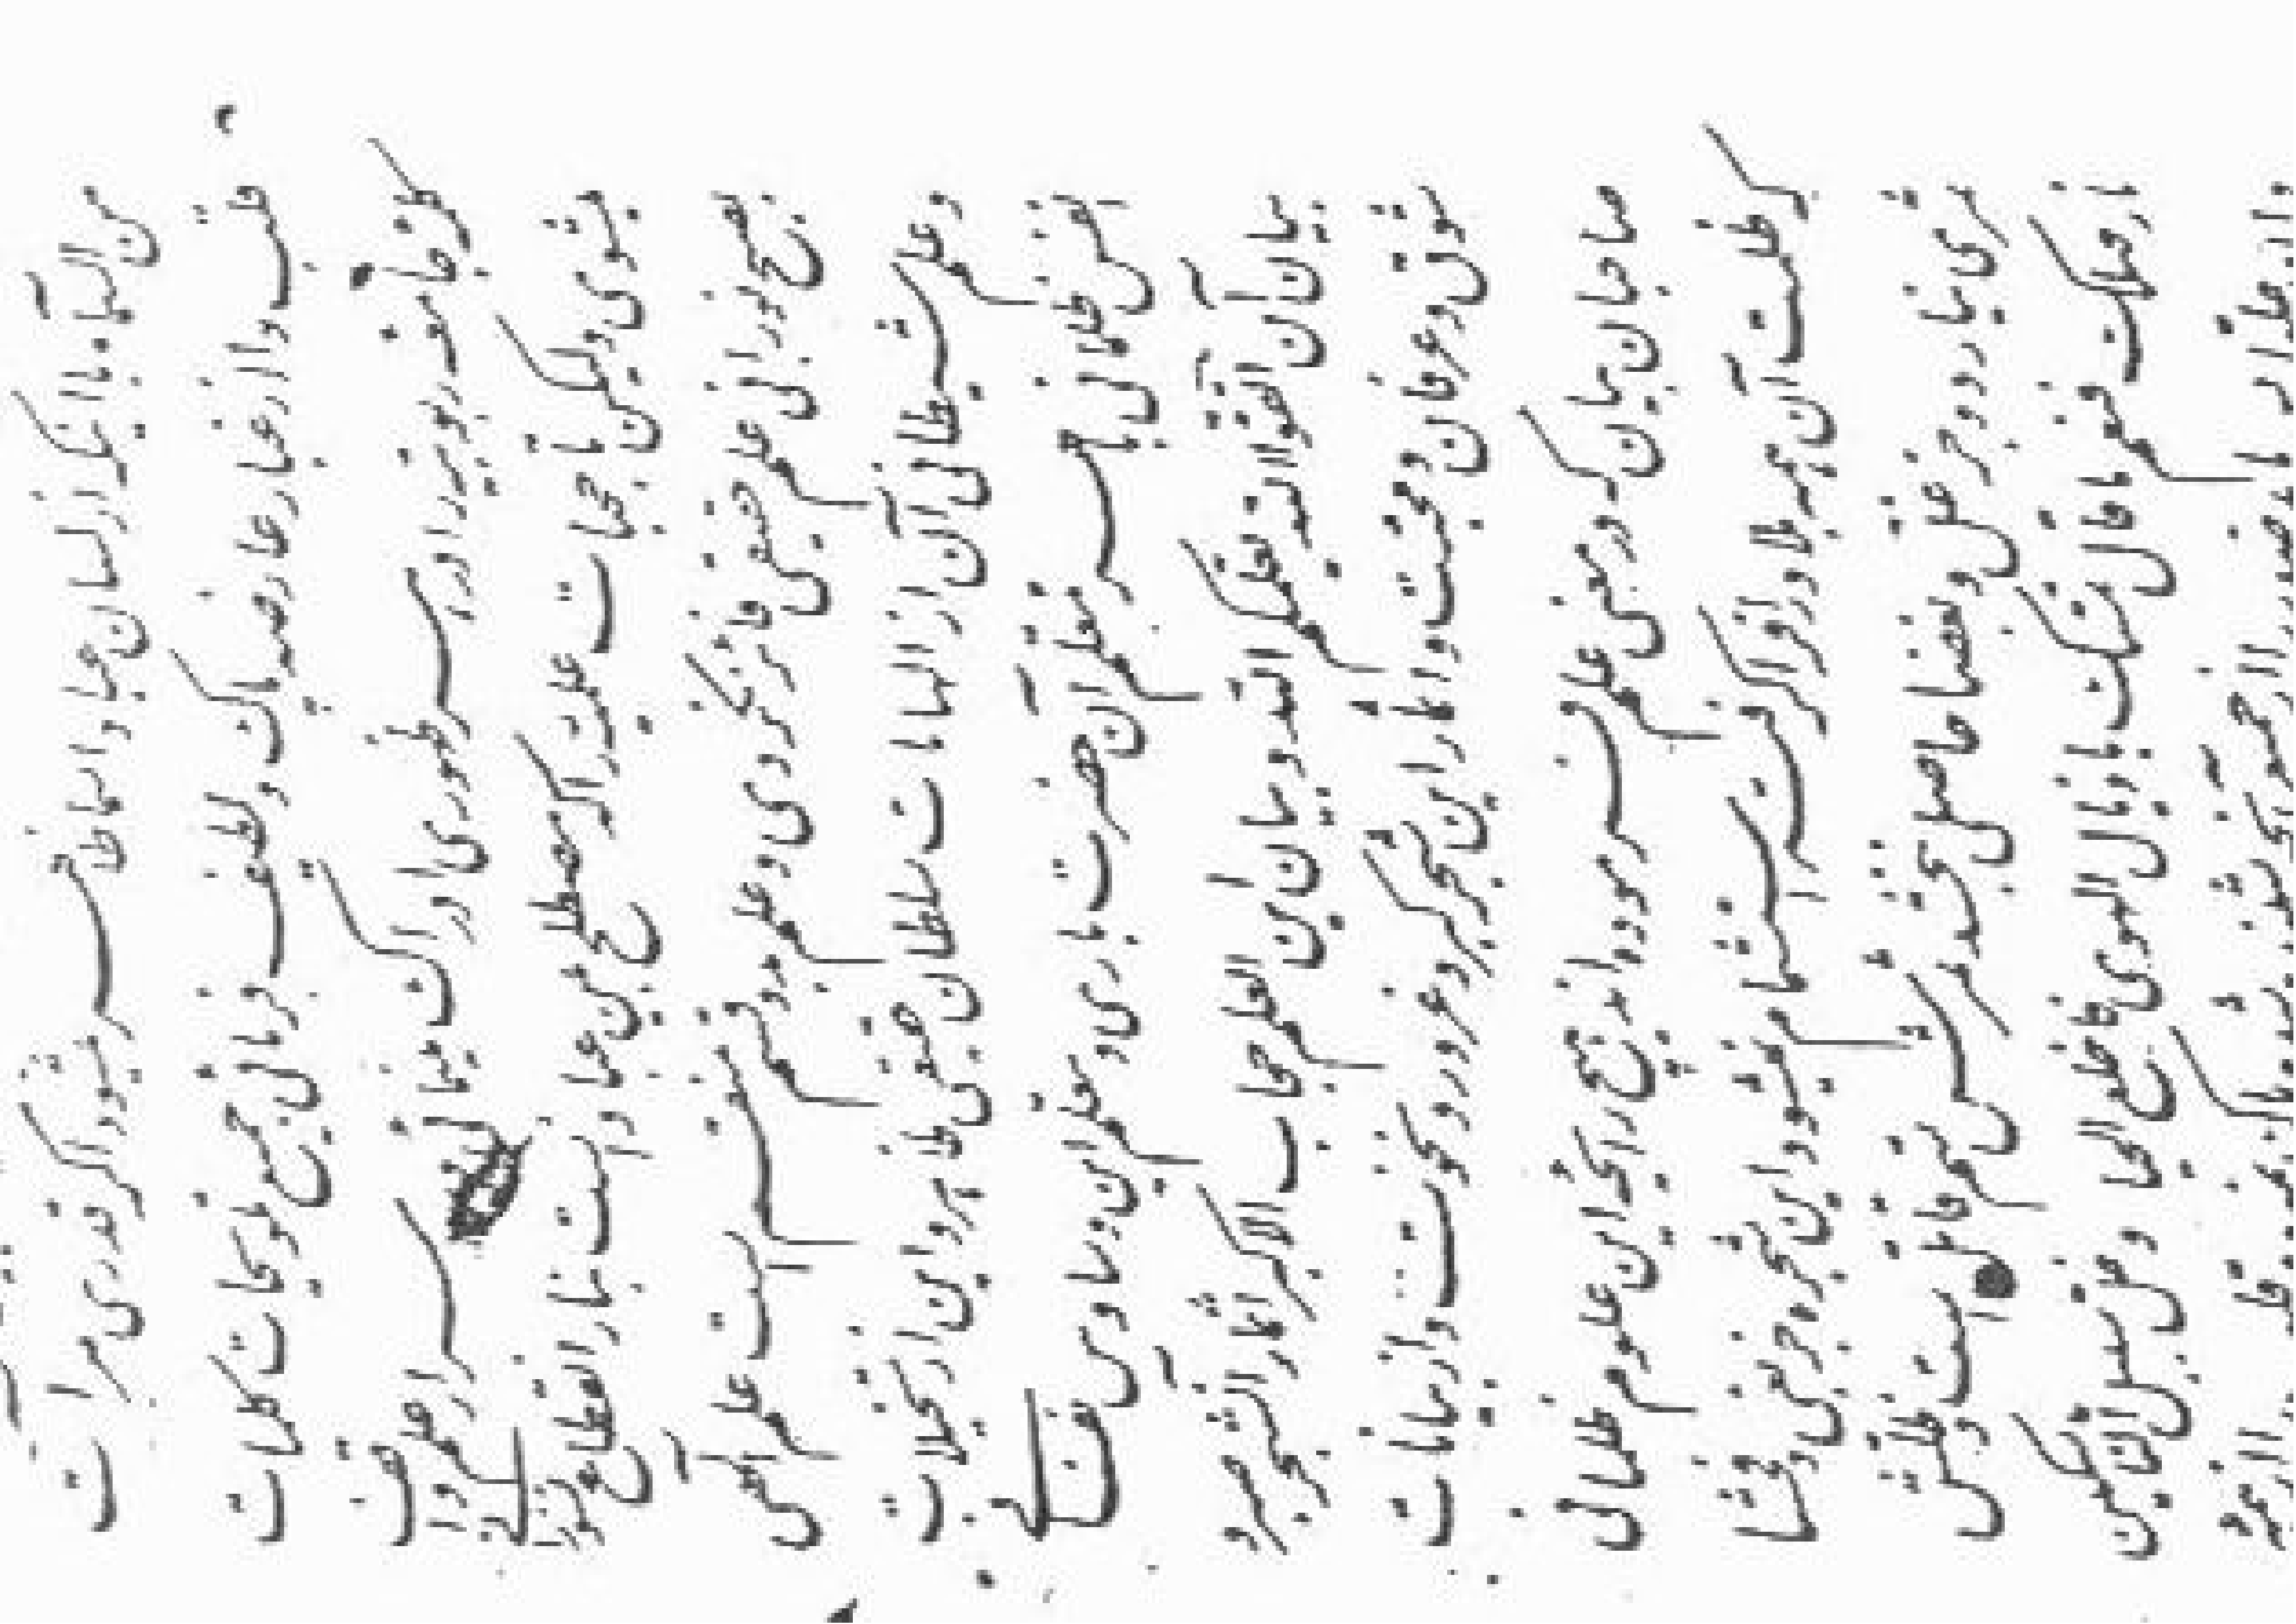 اگر قدری مرات
قلب را از غبار غرض پاک و لطیف فرمائی جمیع تلویحات کلمات
کلمهٔ جامعه ربوبیه را در هر ظهوری ادراک مینمائی و بر اسرار علم واقف
میشوی ولیکن تا حجبات علمیه را که مصطلح بین عباد است بنار انقطاع نسوزانی
بصبح نورانی علم حقیقی فائز نگردی و علم بدو قسم منقسم است علم الهی
و علم شیطانی آن از الهامات سلطان حقیقی ظاهر و این از تخیلات
انفس ظلمانی باهر معلم آن حضرت باری و معلم این وساوس نفسانی
بیان آن اتقوا الله یعلمکم الله و بیان این العلم حجاب الاکبر اثمار آن شجر صبر و
شوق و عرفان و محبت و اثمار این شجر کبر و غرور و نخوت و از بیانات
صاحبان بیان که در معنی علم فرموده‌اند هیچ رائحه این علوم ظلمانی
که ظلمت آن همه بلاد را فراگرفته استشمام نمیشود این شجره جز بغی و فحشا
ثمری نیارد و جز غل و بغضا حاصلی نبخشد ثمرش سم قاتل است و ظلش
نار مهلک است فنعم ما قال تمسک باذیال الهوی فاخلع الحیا و خل سبیل الناسکین